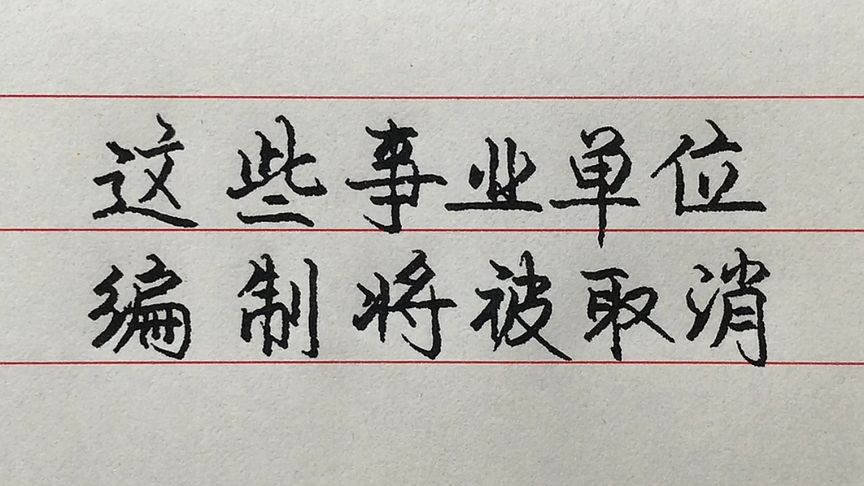 这些事业单位
编制将被取消